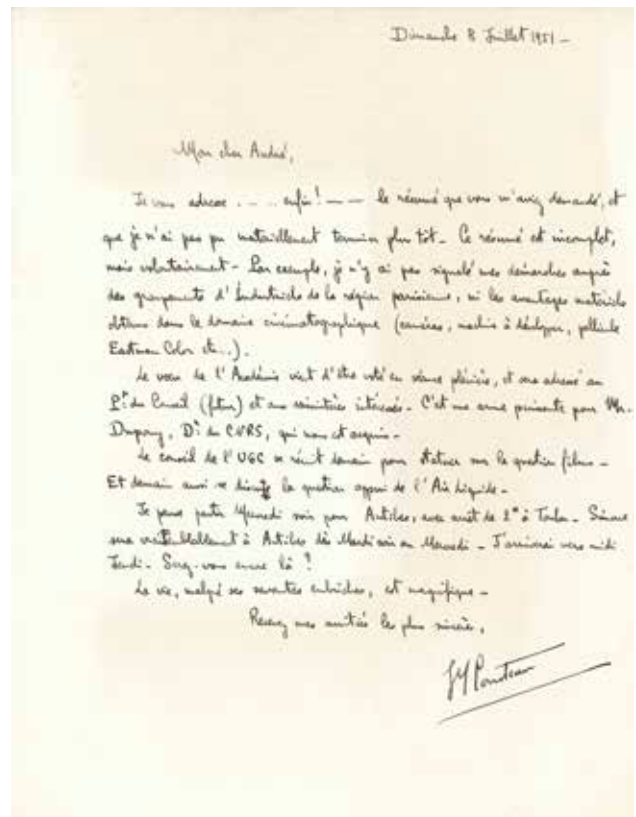 Dimanche 8 Juillet 1951 -
Mon cher André,
Je vous adresse - - .. enfin! - — le résumé que vous m'aviez demandé, et
que je n'ai pas pu matériellement terminer plus tôt - Ce résumé est incomplet,
mais volontairement - Par exemple, je n'y ai pas signalé mes démarches auprès
des groupements d'Industriels de la région parisienne, ni les avantages matériels
obtenus dans le domaine cinématographique (caméras, machine à développer, pellicule
Eastman Color etc...).
Le voeu de l'Académie vient d'être voté en séance plénière, et sera adressé au
Pt du Conseil (futur) et aux ministres intéressés - C'est une arme puissante pour Mr.
Dupouy, Dr du CNRS, qui nous est acquis -
Le conseil de l'UGC se réunit demain pour statuer sur la question films -
Et demain aussi se discute la question appui de l'Air Liquide -
Je pense partir Mercredi soir pour Antibes, avec arrêt de à Toulon - Simone
sera vraisemblablement à Antibes dès Mardi soir ou Mercredi - J'arriverai vers midi
Jeudi - Serez-vous encore là ?
La vie, malgré ses embûches, est magnifique -
Recevez mes amitiés les plus sincères,